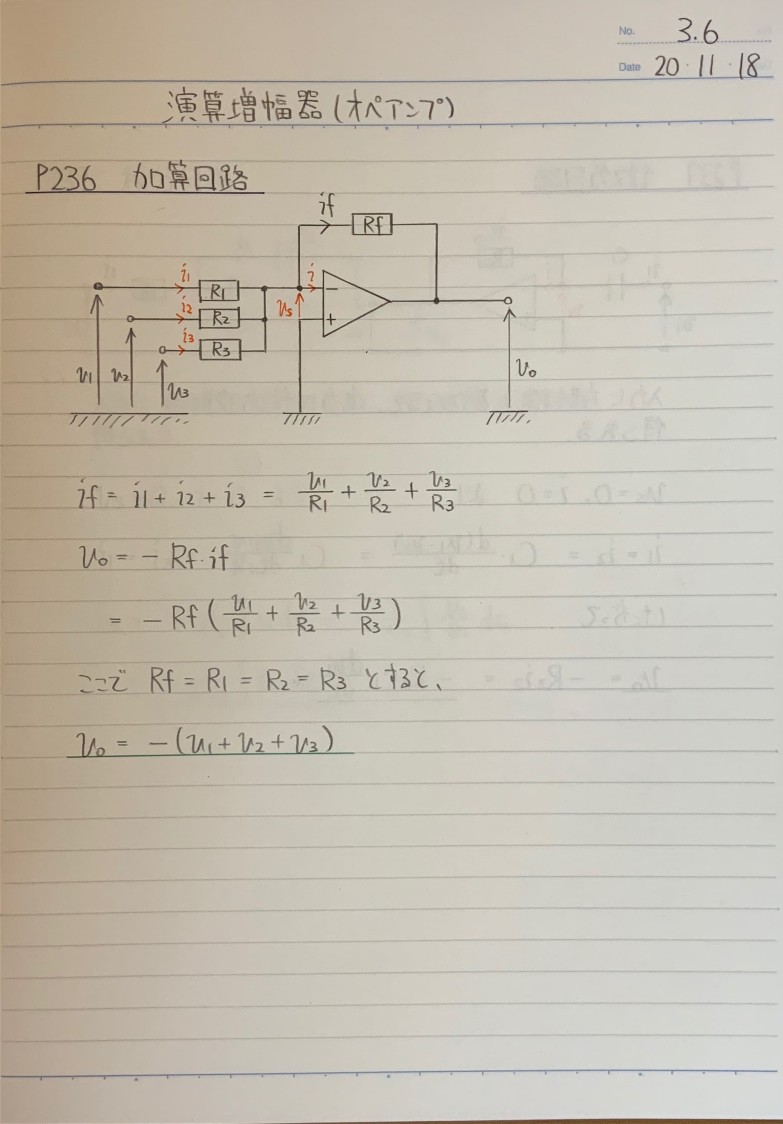 No. 3.6
Date 20・11・18
演算増幅器(オペアンプ)
P236 加算回路
if
Rf
i1 R1 i −
i2 R2 vs
i3 R3 +
v1 v2 v3 vo
if = i1 + i2 + i3 = v1/R1 + v2/R2 + v3/R3
vo = − Rf・if
= − Rf ( v1/R1 + v2/R2 + v3/R3 )
ここで Rf = R1 = R2 = R3 とすると、
vo = − (v1 + v2 + v3)